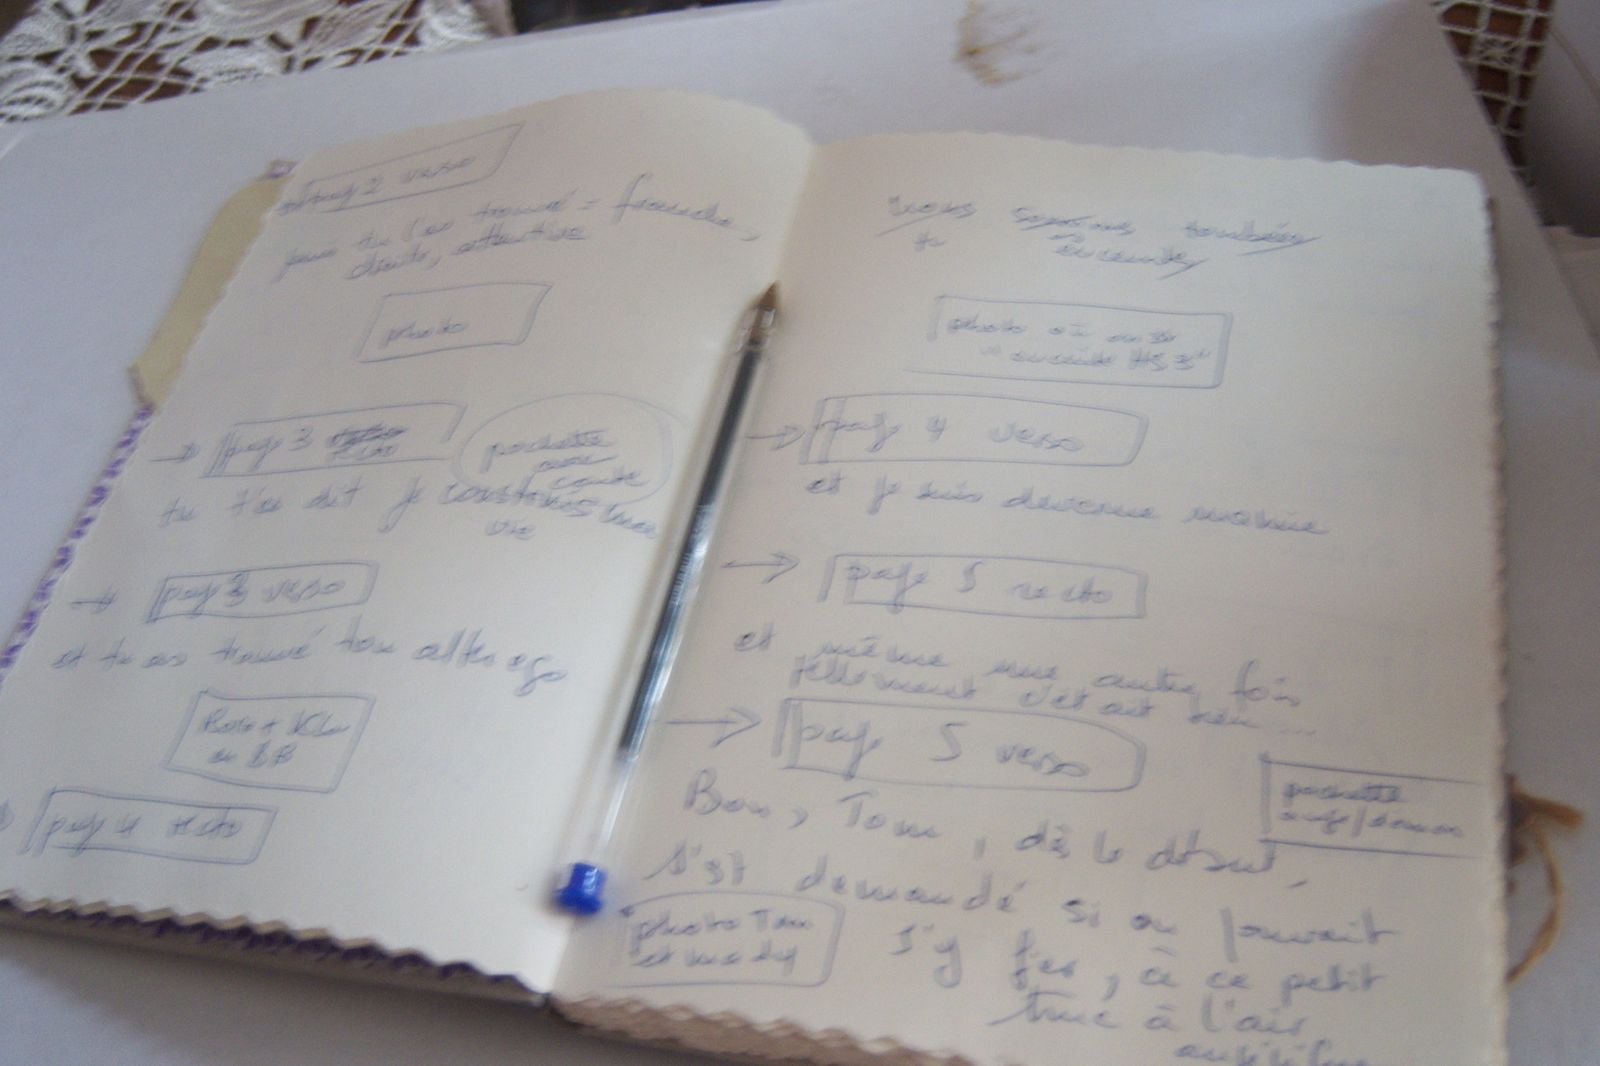 page 2 verso
puis tu l'as trouvé = franche,
droite, attentive
photo
→ page 3 recto
pochette
avec
conte
tu t'es dit je construis ma
vie
→ page 3 verso
et tu as trouvé ton alter ego
BB
page 4 recto
tombées
tu enceinte
photo où on
"enceinte
→ page 4 verso
et je suis devenue mamie
→ page 5 recto
et même une autre fois
tellement c'était
→ page 5 verso
pochette
Bon, Tom, dès le début,
s'est demandé si on pouvait
photo Tom
et
s'y fier, à ce petit
truc à l'air